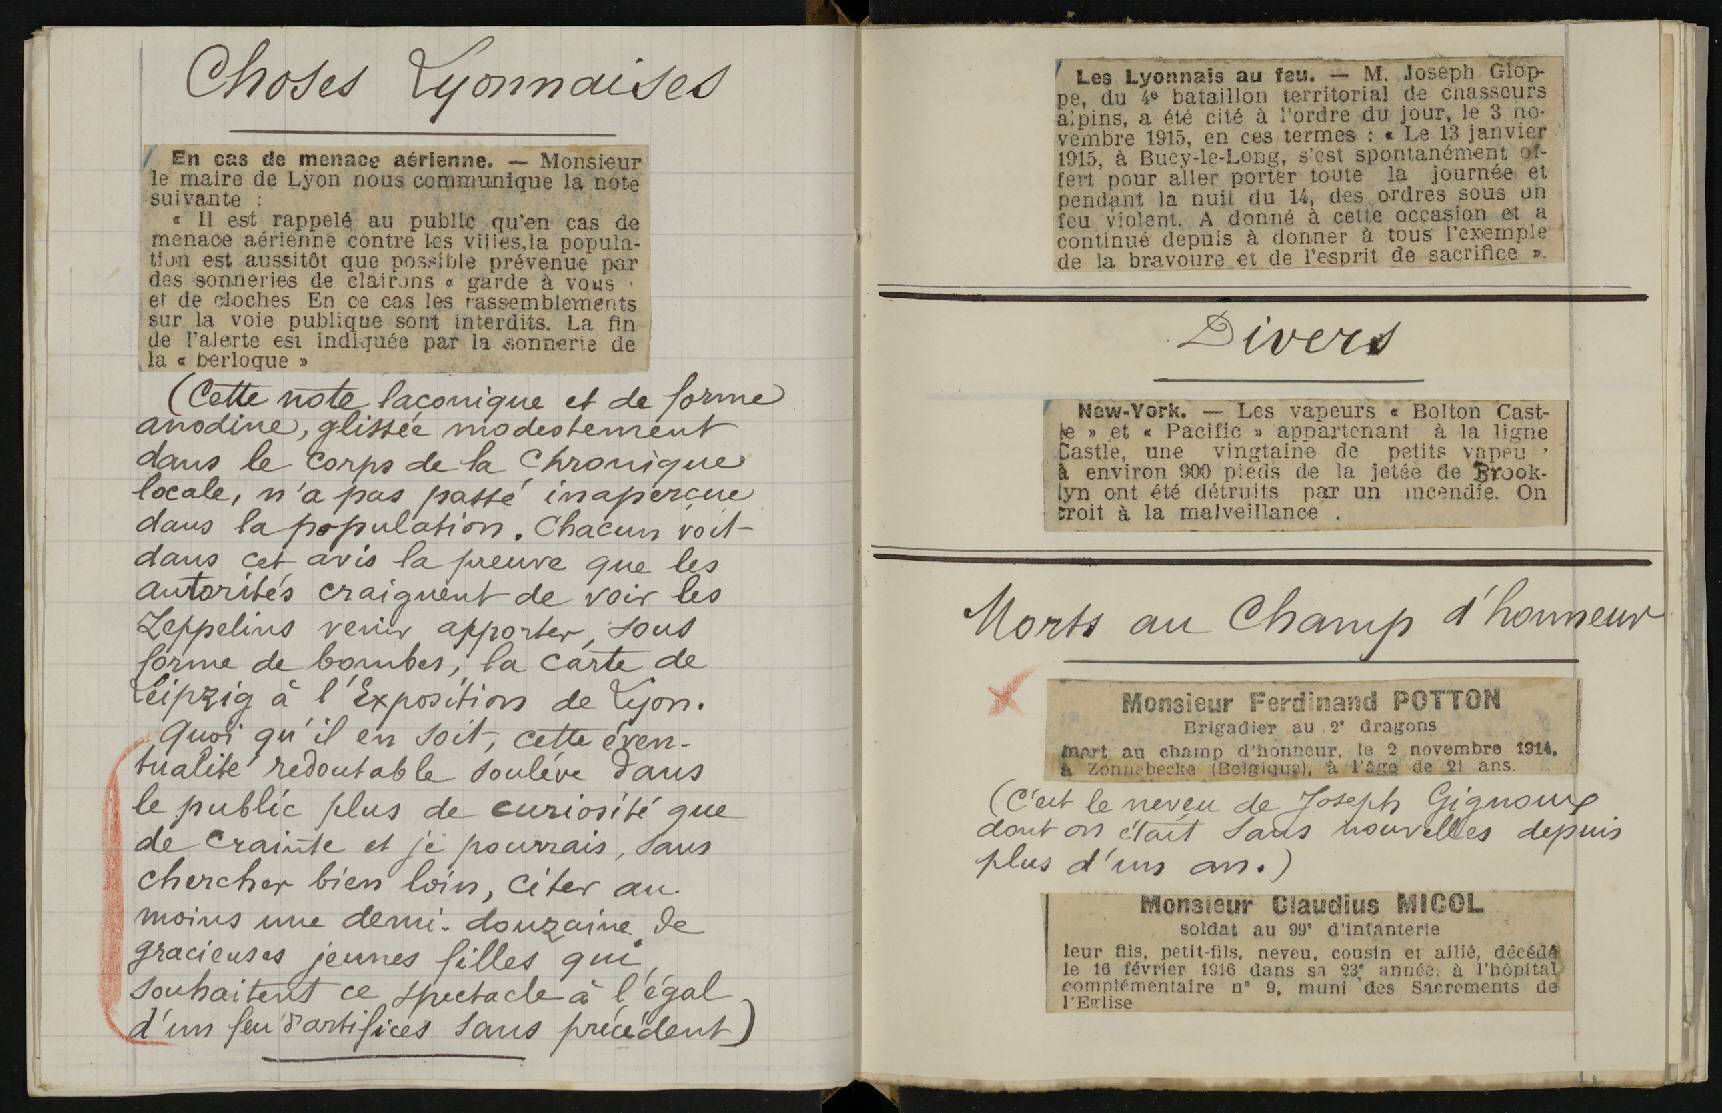 Choses Lyonnaises
En cas de menace aérienne. — Monsieur
le maire de Lyon nous communique la note
suivante :
« Il est rappelé au public qu'en cas de
menace aérienne contre les villes,la popula-
tion est aussitôt que possible prévenue par
des sonneries de clairons « garde à vous
et de cloches En ce cas les rassemblements
sur la voie publique sont interdits. La fin
de l'alerte est indiquée par la sonnerie de
la « berloque »
(Cette note laconique et de forme
anodine, glissée modestement
dans le corps de la Chronique
locale, n'a pas passé inaperçue
dans la population. Chacun voit
dans cet avis la preuve que les
autorités craignent de voir les
Zeppelins venir apporter, sous
forme de bombes, la carte de
Leipzig à l'Exposition de Lyon.
Quoi qu'il en soit, cette éven-
tualité redoutable soulève dans
le public plus de curiosité que
de crainte et je pourrais, sans
chercher bien loin, citer au
moins une demi-douzaine de
gracieuses jeunes filles qui
souhaitent ce spectacle à l'égal
d'un feu d'artifices sans précédent)
Les Lyonnais au feu. — M. Joseph Glop-
pe, du 4e bataillon territorial de chasseurs
alpins, a été cité à l'ordre du jour, le 3 no-
vembre 1915, en ces termes : « Le 13 janvier
1915, à Bucy-le-Long, s'est spontanément of-
fert pour aller porter toute la journée et
pendant la nuit du 14, des ordres sous un
feu violent. A donné à cette occasion et a
continué depuis à donner à tous l'exemple
de la bravoure et de l'esprit de sacrifice ».
Divers
New-York. — Les vapeurs « Bolton Cast-
le » et « Pacific » appartenant à la ligne
Castle, une vingtaine de petits vapeu
à environ 900 pieds de la jetée de Brook-
lyn ont été détruits par un incendie. On
croit à la malveillance .
Morts au Champ d'honneur
Monsieur Ferdinand POTTON
Brigadier au 2e dragons
mort au champ d'honneur, le 2 novembre 1914,
à Zonnebecke (Belgique), à l'âge de 21 ans.
(C'est le neveu de Joseph Gignoux
dont on était sans nouvelles depuis
plus d'un an.)
Monsieur Claudius MICOL
soldat au 99e d'infanterie
leur fils, petit-fils, neveu, cousin et allié, décédé
le 16 février 1916 dans sa 23e année, à l'hôpital
complémentaire n° 9, muni des Sacrements de
l'Eglise